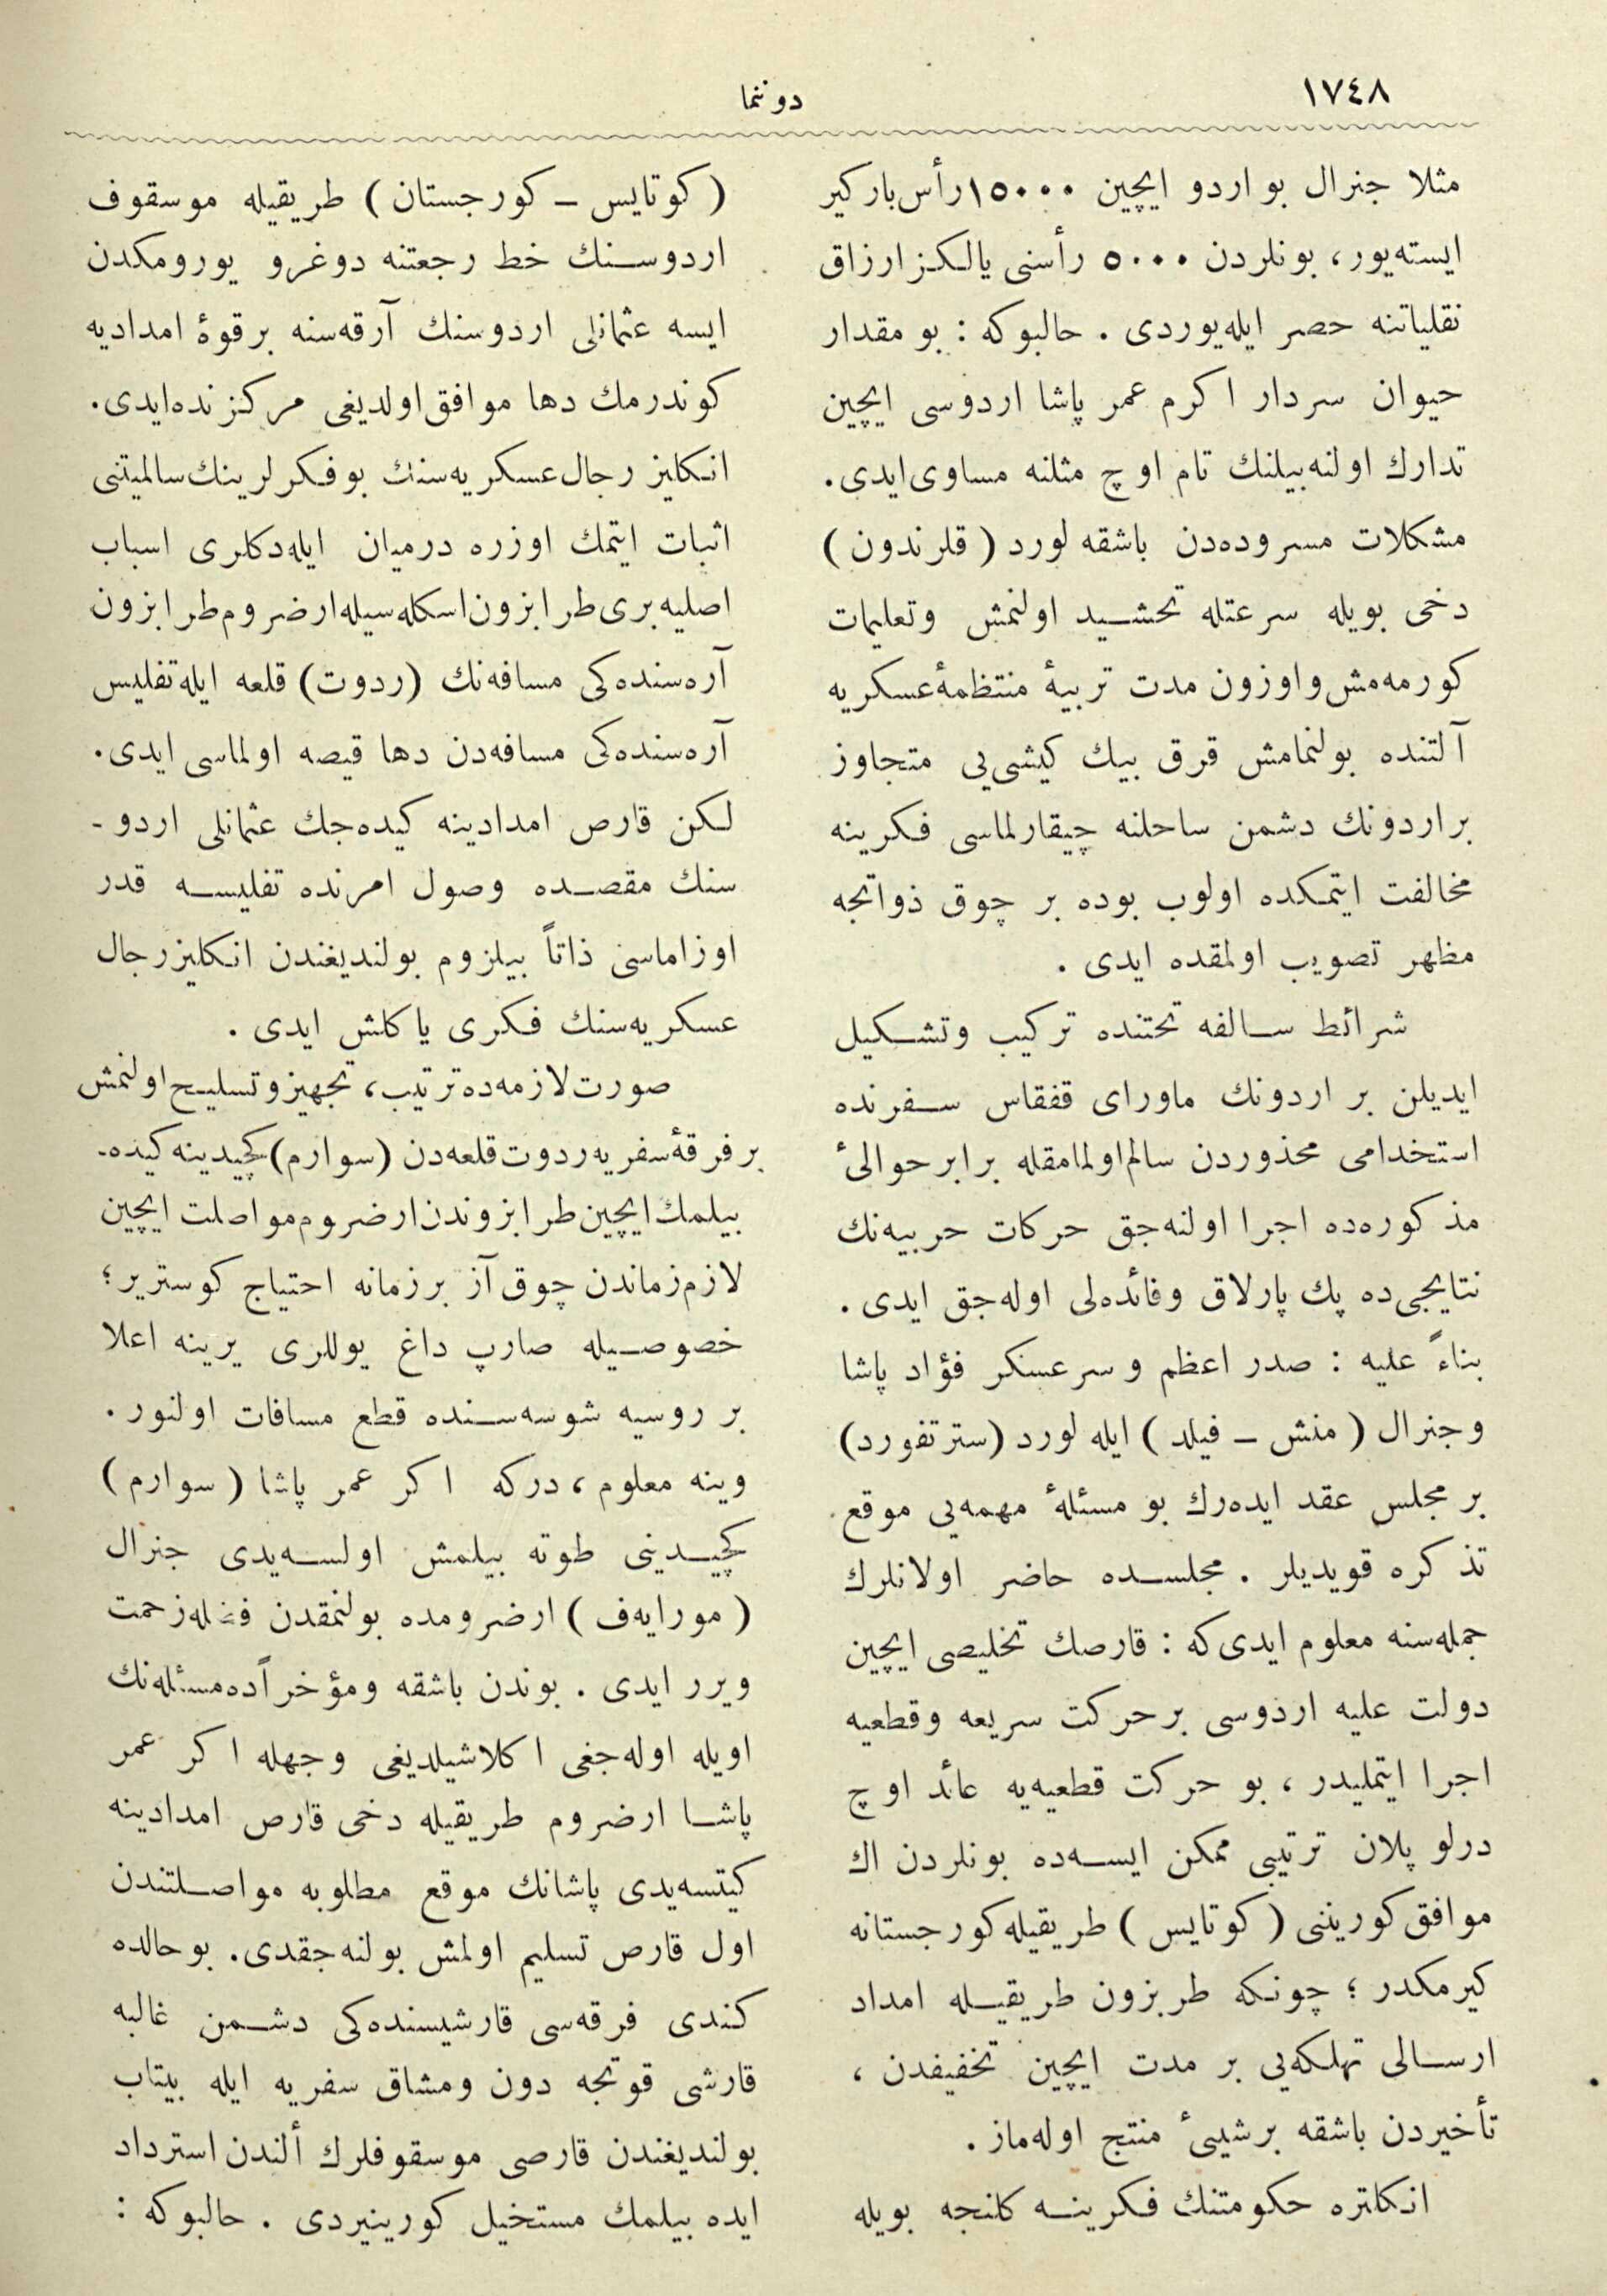 ١٧٤٨
دوننما
مثلا جنرال بو اردو ايچين ١٥٠٠٠ رأس باركير
ايسته‌يور، بونلردن ٥٠٠٠ رأسنى يالكز ارزاق
نقلياتنه حصر ايله‌يوردى . حالبوكه : بو مقدار
حيوان سردار اكرم عمر پاشا اردوسى ايچين
تدارك اولنه‌بيلنك تام اوچ مثلنه مساوى ايدى.
مشكلات مسروده‌دن باشقه لورد (قلرندون)
دخى بويله سرعتله تحشيد اولنمش وتعليمات
كورمه‌مش و اوزون مدت تربيۀ منتظمۀ عسكريه
آلتنده بولنمامش قرق بيك كيشى‌يى متجاوز
بر اردونك دشمن ساحلنه چيقارلماسى فكرينه
مخالفت ايتمكده اولوب بوده بر چوق ذواتجه
مظهر تصويب اولمقده ايدى .
شرائط سالفه تحتنده تركيب وتشكيل
ايديلن بر اردونك ماوراى قفقاس سفرنده
استخدامى محذوردن سالم اولمامقله برابر حوالئ
مذكوره‌ده اجرا اولنه‌جق حركات حربيه‌نك
نتايجى‌ده پك پارلاق وفائده‌لى اوله‌جق ايدى .
بناءً عليه : صدر اعظم و سرعسكر فؤاد پاشا
وجنرال (منش ـ فيلد) ايله لورد (سترتفورد)
بر مجلس عقد ايده‌رك بو مسئلۀ مهمه‌يى موقع
تذكره قويديلر . مجلسده حاضر اولانلرك
جمله‌سنه معلوم ايدى‌كه : قارصك تخليصى ايچين
دولت عليه اردوسى بر حركت سريعه وقطعيه
اجرا ايتمليدر ، بو حركت قطعيه‌يه عائد اوچ
درلو پلان ترتيبى ممكن ايسه‌ده بونلردن اك
موافق كورينى (كوتايس) طريقيله كورجستانه
كيرمكدر ؛ چونكه طربزون طريقيله امداد
ارسالى تهلكه‌يى بر مدت ايچين تخفيفدن ،
تأخيردن باشقه بر شيئ منتج اوله‌ماز .
انكلتره حكومتنك فكرينه كلنجه بويله
(كوتايس ـ كورجستان) طريقيله موسقوف
اردوسنك خط رجعتنه دوغرو يورومكدن
ايسه عثمانلى اردوسنك آرقه‌سنه بر قوۀ امداديه
كوندرمك دها موافق اولديغى مركزنده ايدى.
انكليز رجال عسكريه‌سنك بو فكرلرينك سالميتنى
اثبات ايتمك اوزره درميان ايله‌دكلرى اسباب
اصليه برى طرابزون اسكله‌سيله ارضروم طرابزون
آره‌سنده‌كى مسافه‌نك (ردوت) قلعه ايله تفليس
آره‌سنده‌كى مسافه‌دن دها قيصه اولماسى ايدى.
لكن قارص امدادينه كيده‌جك عثمانلى اردو -
سنك مقصده وصول امرنده تفليسه قدر
اوزاماسى ذاتاً بيلزوم بولنديغندن انكليز رجال
عسكريه‌سنك فكرى ياكلش ايدى .
صورت لازمه‌ده ترتيب، تجهيز و تسليح اولنمش
بر فرقۀ سفريه ردوت قلعه‌دن (سوارم) كچيدينه كيده-
بيلمك ايچين طرابزوندن ارضرومه مواصلت ايچين
لازم زماندن چوق آز بر زمانه احتياج كوسترير ؛
خصوصيله صارپ داغ يوللرى يرينه اعلا
بر روسيه شوسه‌سنده قطع مسافات اولنور .
وينه معلوم ، دركه اكر عمر پاشا (سوارم)
كچيدينى طوته بيلمش اولسه‌يدى جنرال
(مورايه‌ف) ارضرومده بولنمقدن زحمت
ويرر ايدى . بوندن باشقه ومؤخراً ده مسئله‌نك
اويله اوله‌جغى اكلاشيلديغى وجهله اكر عمر
پاشا ارضروم طريقيله دخى قارص امدادينه
كيتسه‌يدى پاشانك موقع مطلوبه مواصلتندن
اول قارص تسليم اولمش بولنه‌جقدى. بو حالده
كندى فرقه‌سى قارشيسنده‌كى دشمن غالبه
قارشى قوتجه دون ومشاق سفريه ايله بيتاب
بولنديغندن قارصى موسقوفلرك ألندن استرداد
ايده بيلمك مستخيل كورينيردى . حالبوكه :